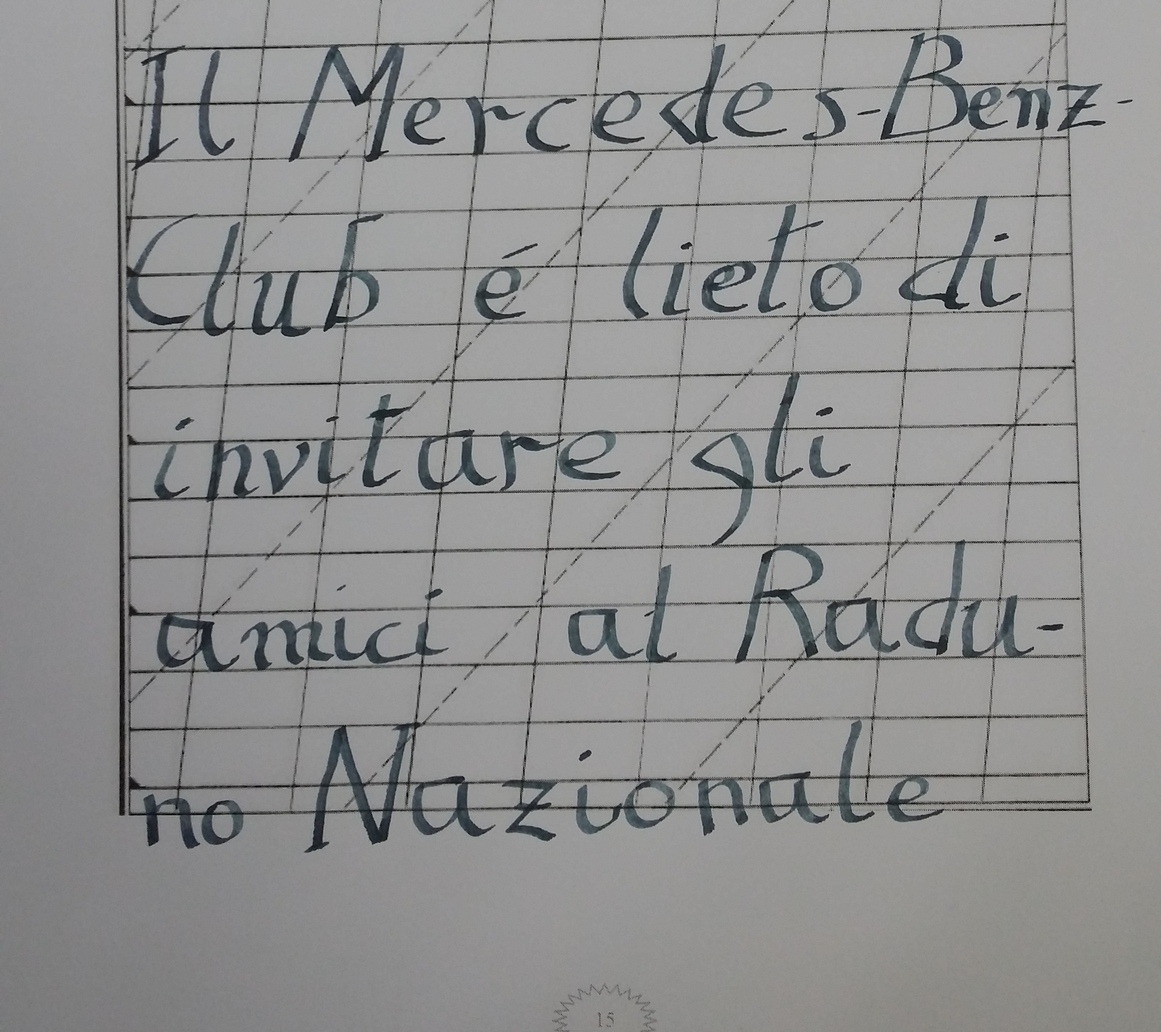 Il Mercedes-Benz-
Club é lieto di
invitare gli
amici al Radu-
no Nazionale
15